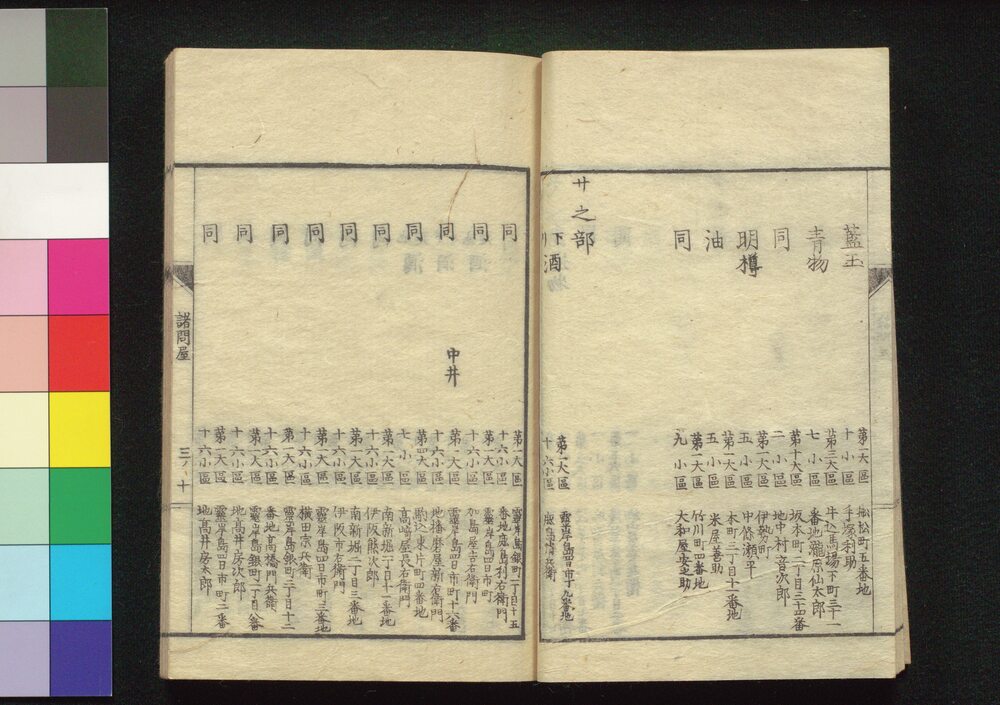 藍玉
第一大區
十小區
五番地
手塚利助
青物
第三大區
七小區
牛込馬場下町三十一
番地瀧原仙太郎
同
第十大區
二小區
坂本町二丁目三十四番
地中村音次郎
明樽
第一大區
五小區
伊勢町
中條瀬平
油
第一大區
五小區
本町三丁目十一番地
米屋善助
同
第一大區
九小區
竹川町四番地
大和屋安之助
サ之部
下り酒
第一大區
十六小區
靈岸島四日市町九番地
鹿島清兵衛
同
第一大區
十六小區
靈岸島銀町一丁目十五
番地鹿島利右衛門
同
第一大區
十六小區
靈岸島四日市町
加島屋吉右衛門
同
中井
第一大區
十六小區
靈岸島四日市町十六番
地播磨屋新右衛門
同
第四大區
七小區
駒込東片町四番地
高崎屋長右衛門
同
第一大區
十六小區
南新堀二丁目十一番地
伊阪熊次郎
同
第一大區
十六小區
南新堀二丁目三番地
伊阪市右衛門
同
第一大區
十六小區
靈岸島四日市町三番地
横田宗兵衛
同
第一大區
十六小區
靈岸島銀町二丁目十二
番地高橋門兵衛
同
第一大區
十六小區
靈岸島銀町一丁目八番
地高井房次郎
同
第一大區
十六小區
靈岸島四日市町二番
地高井房太郎
諸問屋
三ノ十